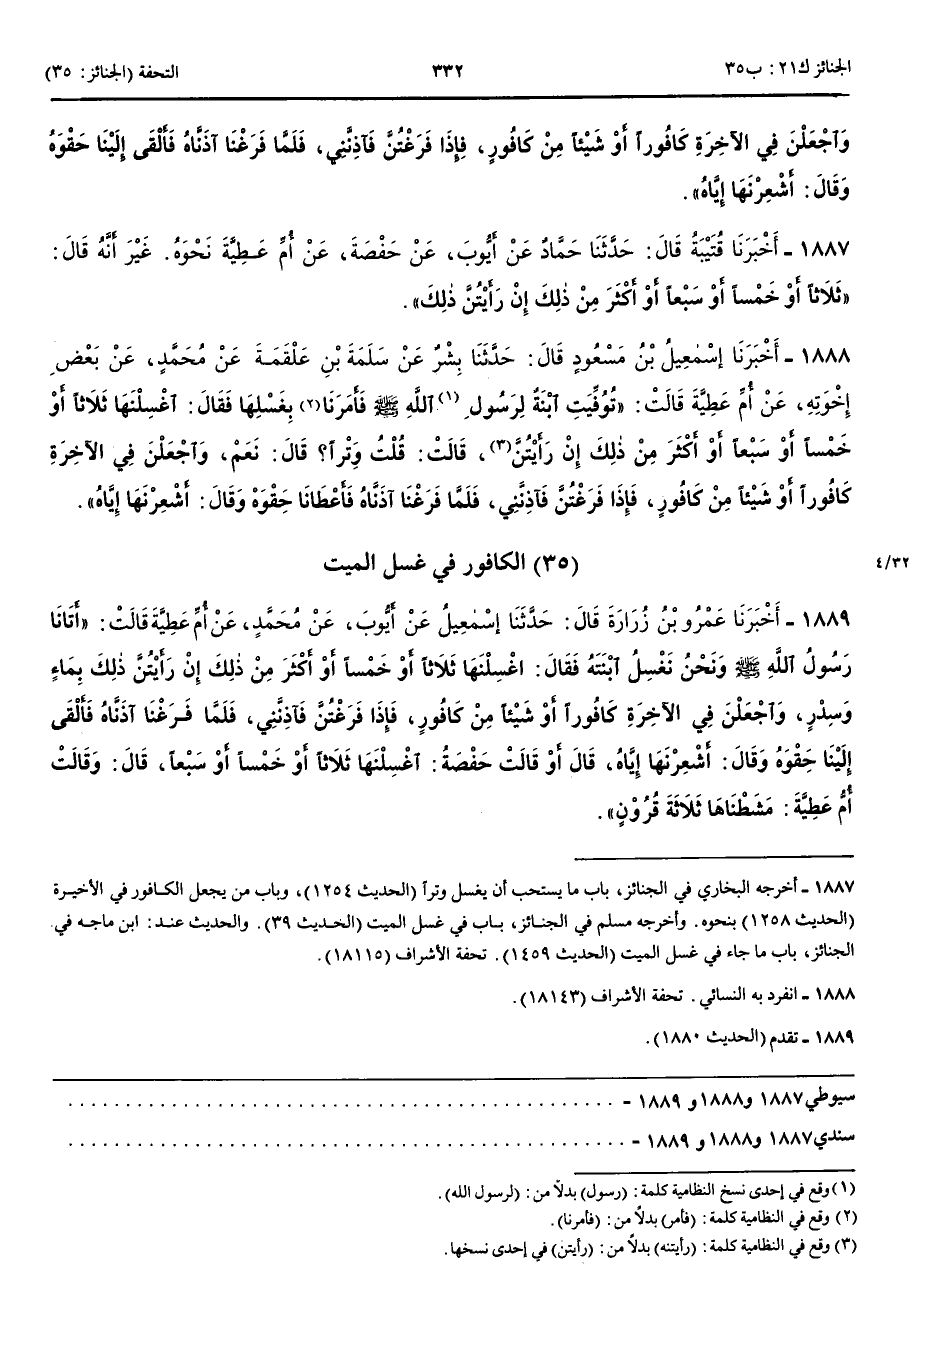 الجنائز ك٢١: ب٣٥ ٣٣٢ التحفة (الجنائز: ٣٥)
وَٱجْعَلْنَ فِي الآخِرَةِ كَافُوراً أَوْ شَيْئاً مِنْ كَافُورٍ، فِإِذَا فَرَغْتُنَّ فَآذِنَّنِي، فَلَمَّا فَرَغْنَا آذَنَّاهُ فَأَلْقَى إِلَيْنَا حَقْوَهُ
وَقَالَ: أَشْعِرْنَهَا إِيَّاهُ».
١٨٨٧ ـ أَخْبَرَنَا قُتَيْبَةُ قَالَ: حَدَّثَنَا حَمَّادٌ عَنْ أَيُّوبَ، عَنْ حَفْصَةَ، عَنْ أُمِّ عَطِيَّةَ نَحْوَهُ. غَيْرَ أَنَّهُ قَالَ:
«ثَلَاثاً أَوْ خَمْساً أَوْ سَبْعاً أَوْ أَكْثَرَ مِنْ ذٰلِكَ إِنْ رَأَيْتُنَّ ذٰلِكَ».
١٨٨٨ ـ أَخْبَرَنَا إِسْمٰعِيلُ بْنُ مَسْعُودٍ قَالَ: حَدَّثَنَا بِشْرٌ عَنْ سَلَمَةَ بْنِ عَلْقَمَةَ عَنْ مُحَمَّدٍ، عَنْ بَعْضِ
إِخْوَتِهِ، عَنْ أُمِّ عَطِيَّةَ قَالَتْ: «تُوُفِّيَتِ ٱبْنَةٌ لِرَسُولِ(١) ٱللَّهِ ﷺ فَأَمَرَنَا(٢) بِغَسْلِهَا فَقَالَ: ٱغْسِلْنَهَا ثَلَاثاً أَوْ
خَمْساً أَوْ سَبْعاً أَوْ أَكْثَرَ مِنْ ذٰلِكَ إِنْ رَأَيْتُنَّ(٣)، قَالَتْ: قُلْتُ وَتْراً؟ قَالَ: نَعَمْ، وَٱجْعَلْنَ فِي الآخِرَةِ
كَافُوراً أَوْ شَيْئاً مِنْ كَافُورٍ، فَإِذَا فَرَغْتُنَّ فَآذِنَّنِي، فَلَمَّا فَرَغْنَا آذَنَّاهُ فَأَعْطَانَا حِقْوَهُ وَقَالَ: أَشْعِرْنَهَا إِيَّاهُ».
(٣٥) الكافور في غسل الميت ٤/٣٢
١٨٨٩ ـ أَخْبَرَنَا عَمْرُو بْنُ زُرَارَةَ قَالَ: حَدَّثَنَا إِسْمٰعِيلُ عَنْ أَيُّوبَ، عَنْ مُحَمَّدٍ، عَنْ أُمِّ عَطِيَّةَ قَالَتْ: «أَتَانَا
رَسُولُ ٱللَّهِ ﷺ وَنَحْنُ نَغْسِلُ ٱبْنَتَهُ فَقَالَ: اغْسِلْنَهَا ثَلَاثاً أَوْ خَمْساً أَوْ أَكْثَرَ مِنْ ذٰلِكَ إِنْ رَأَيْتُنَّ ذٰلِكَ بِمَاءٍ
وَسِدْرٍ، وَٱجْعَلْنَ فِي الآخِرَةِ كَافُوراً أَوْ شَيْئاً مِنْ كَافُورٍ، فَإِذَا فَرَغْتُنَّ فَآذِنَّنِي، فَلَمَّا فَرَغْنَا آذَنَّاهُ فَأَلْقَى
إِلَيْنَا حِقْوَهُ وَقَالَ: أَشْعِرْنَهَا إِيَّاهُ، قَالَ أَوْ قَالَتْ حَفْصَةُ: ٱغْسِلْنَهَا ثَلَاثاً أَوْ خَمْساً أَوْ سَبْعاً، قَالَ: وَقَالَتْ
أُمُّ عَطِيَّةَ: مَشَطْنَاهَا ثَلَاثَةَ قُرُوْنٍ».
١٨٨٧ ـ أخرجه البخاري في الجنائز، باب ما يستحب أن يغسل وتراً (الحديث ١٢٥٤)، وباب من يجعل الكافور في الأخيرة
(الحديث ١٢٥٨) بنحوه. وأخرجه مسلم في الجنائز، باب في غسل الميت (الحديث ٣٩). والحديث عند: ابن ماجه في
الجنائز، باب ما جاء في غسل الميت (الحديث ١٤٥٩). تحفة الأشراف (١٨١١٥).
١٨٨٨ ـ انفرد به النسائي. تحفة الأشراف (١٨١٤٣).
١٨٨٩ ـ تقدم (الحديث ١٨٨٠).
سيوطي ١٨٨٧ و١٨٨٨ و ١٨٨٩ - ........................................
سندي ١٨٨٧ و١٨٨٨ و ١٨٨٩ - ........................................
(١) وقع في إحدى نسخ النظامية كلمة: (رسول) بدلاً من: (لرسول الله).
(٢) وقع في النظامية كلمة: (فأمر) بدلاً من: (فأمرنا).
(٣) وقع في النظامية كلمة: (رأيتنه) بدلاً من: (رأيتن) في إحدى نسخها.